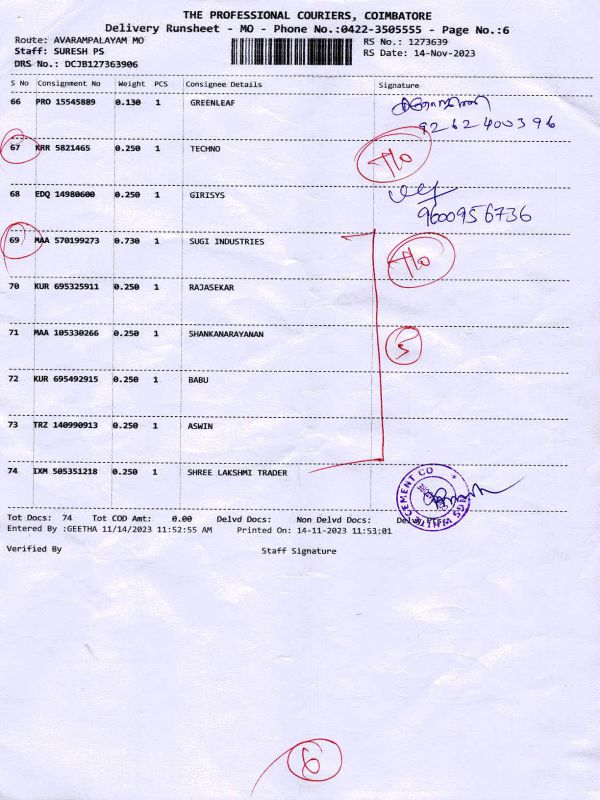 THE PROFESSIONAL COURIERS, COIMBATORE
Delivery Runsheet - MO - Phone No.:0422-3505555 - Page No.:6
Route: AVARAMPALAYAM MO
RS No.: 1273639
Staff: SURESH PS
RS Date: 14-Nov-2023
DRS No.: DCJB127363906
S No Consignment No Weight PCS Consignee Details Signature
66 PRO 15545889 0.130 1 GREENLEAF
9262400396
67 KRR 5821465 0.250 1 TECHNO
68 EDQ 14980600 0.250 1 GIRISYS
9600956736
69 MAA 570199273 0.730 1 SUGI INDUSTRIES
70 KUR 695325911 0.250 1 RAJASEKAR
71 MAA 105330266 0.250 1 SHANKANARAYANAN
5
72 KUR 695492915 0.250 1 BABU
73 TRZ 140990913 0.250 1 ASWIN
74 IXM 505351218 0.250 1 SHREE LAKSHMI TRADER
Tot Docs: 74 Tot COD Amt: 0.00 Delvd Docs: Non Delvd Docs:
Entered By :GEETHA 11/14/2023 11:52:55 AM Printed On: 14-11-2023 11:53:01
Verified By Staff Signature
6